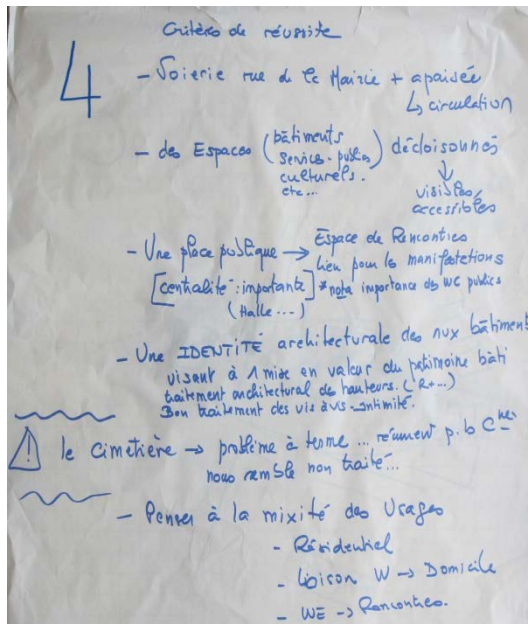 4
Critères de réussite
- Voierie rue de la Mairie + apaisée
↳ circulation
- des Espaces (bâtiments services-publics culturels. etc...) décloisonnés
↓
visibles/
accessibles
- Une place publique → Espace de Rencontres
lieu pour les manifestations
[centralité : importante] * nota importance des WC publics
(Halle...)
- Une IDENTITÉ architecturale des nux bâtiments
visant à 1 mise en valeur du patrimoine bâti
traitement architectural de hauteurs. (R+...)
Bon traitement des vis à vis - intimité.
⚠ le cimetière → problème à terme ...
nous semble non traité...
- Penser à la mixité des Usages
- Résidentiel
- Liaison W → Domicile
- WE → Rencontres.